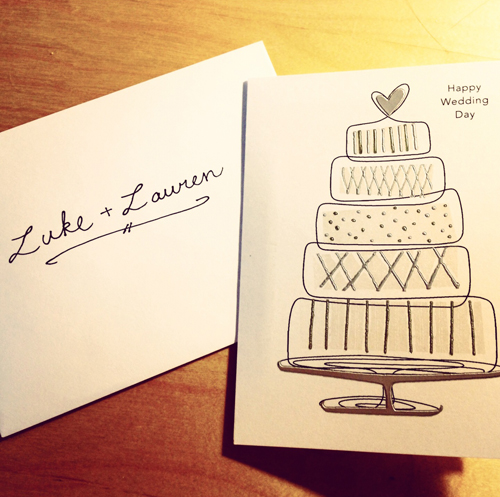 Luke + Lauren
Happy
Wedding
Day